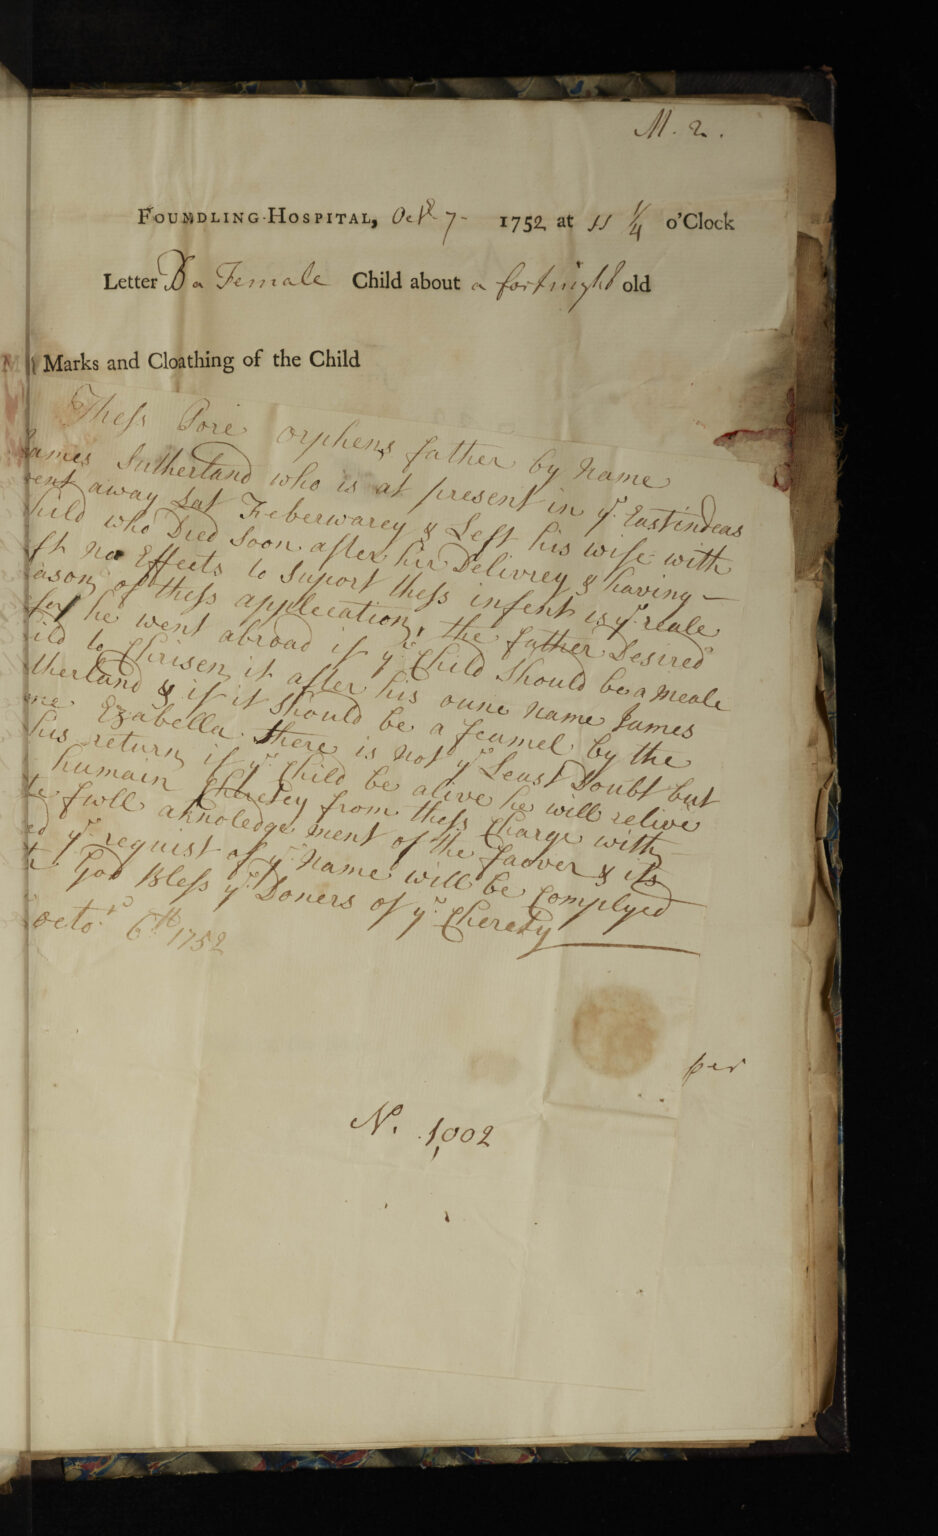 M. 2.
FOUNDLING-HOSPITAL, Octr 7- 1752 at 11 1/4 o'Clock
Letter B a Female Child about a fortnight old
Marks and Cloathing of the Child
Thess Pore orphens father by Name
James Sutherland who is at present in ye Eastindeas
went away Last Feberwarey & Left his wife with
hild who Died Soon after hir Delivrey & having
ft no Effects to Suport thess infent is ye reale
eason of thess applecation, the father Desired
for he went abroad if ye Child Should be a meale
ild to Chrisen it after his oune Name James
therland & if it Should be a feamel by the
me Ezabella there is not ye Least Doubt but
his return if ye Child be alive he will relive
humain Cherety from thess Charge with
te fwll aknoledgement of the faover & its
ed ye requist of ye Name will be Complyed
God Bless ye Doners of ye Cherety
octor 6th 1752
per
No. 1,002